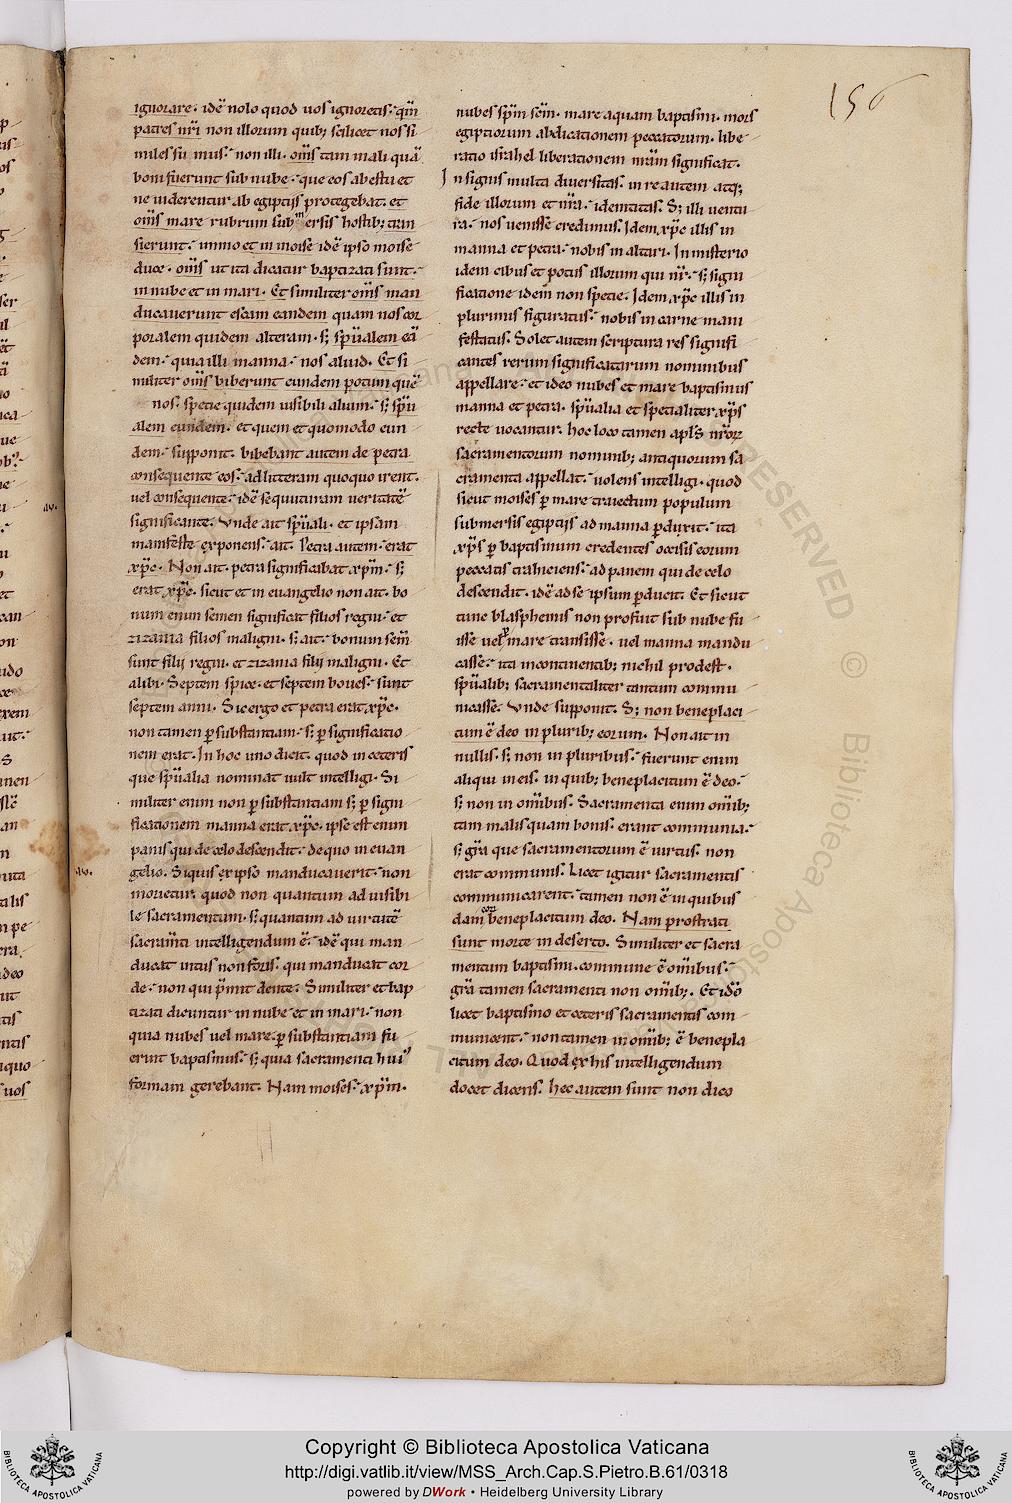 156
ignorare. idẽ nolo quod uos ignoretis. qm̃
patres nr̃i non illorum quib; scilicet nos si
miles sumus. non illi. om̃s tam mali quã
boni fuerunt sub nube. que eos ab estu et
ne uiderentur ab egiptijs protegebat. et
om̃s mare rubrum submersis hostib; tran
sierunt. immo et in moise idẽ ipso moise
duce. om̃s ut ita dicatur baptizati sunt.
in nube et in mari. Et similiter om̃s man
ducauerunt escam eandem quam nos cor
poralem quidem alteram. s; sp̃ualem eã
dem. quia illi manna. nos aliud. Et si
militer om̃s biberunt eundem potum quẽ
nos. specie quidem uisibili alium. s; sp̃u
alem eundem. et quem et quomodo eun
dem. supponit. bibebant autem de petra
consequente eos. ad litteram quoquo irent.
uel consequente. idẽ sequuturam ueritatẽ
significante. Unde ait sp̃uali. et ipsam
manifeste exponens. ait. Petra autem. erat
xp̃c. Non ait. petra significabat xp̃m. s;
erat xp̃c. sicut et in euangelio non ait. bo
num enim semen significat filios regni. et
zizania filios maligni. s; ait. bonum sem̃
sunt filij regni. et zizania filij maligni. Et
alibi. Septem spice. et septem boues. sunt
septem anni. Sic ergo et petra erat xp̃c.
non tamen p substantiam. s; p significatio
nem erat. In hoc uno dicit. quod in ceteris
que sp̃ualia nominat uult intelligi. Si
militer enim non p substantiam s; p signi
ficationem manna erat xp̃c. ipse est enim
panis qui de celo descendit. de quo in euan
gelio. Siquis ex ipso manducauerit. non
morietur. quod non quantum ad uisibi
le sacramentum. s; quantum ad uirtutẽ
sacram̃ti intelligendum ẽ. idẽ qui man
ducat intus non foris. qui manducat cor
de. non qui p̃mit dente. Similiter et bap
tizati dicuntur in nube et in mari. non
quia nubes uel mare. p substantiam fu
erint baptismus. s; quia sacramenti hui9
formam gerebant. Nam moises. xp̃m.
nubes sp̃m sc̃m. mare aquam baptismi. mors
egiptiorum abdicationem peccatorum. libe
ratio israhel liberationem nr̃am significat.
In signis multa diuersitas. in re autem atq;
fide illorum et nr̃a. identitas. S; illi ventu
ra. nos uenisse credimus. Idem xp̃c illis in
manna et petra. nobis in altari. In misterio
idem cibus et potus illorum qui nr̃. s; signi
ficatione idem non specie. Idem xp̃c illis in
plurimis figuratus. nobis in carne mani
festatus. Solet autem scriptura res signifi
cantes rerum significatarum nominibus
appellare. et ideo nubes et mare baptismus
manna et petra. sp̃ualia et specialiter xp̃s
recte uocantur. hoc loco tamen apl's nr̃or
sacramentorum nominib; antiquorum sa
cramenta appellat. uolens intelligi. quod
sicut moises p mare traiectum populum
submersis egiptijs ad manna pduxit. ita
xp̃s p baptismum credentes occisis eorum
peccatis traiciens. ad panem qui de celo
descendit. idẽ ad se ipsum pducit. Et sicut
tunc blasphemis non profuit sub nube fu
isse uel p mare transisse. uel manna mandu
casse. ita incontinentib; nichil prodest.
sp̃ualib; sacramentaliter tantum commu
nicasse. Unde supponit. S; non beneplaci
tum ẽ deo in plurib; eorum. Non ait in
nullis. s; non in pluribus. fuerunt enim
aliqui in eis. in quib; beneplacitum ẽ deo.
s; non in om̃ibus. Sacramenta enim om̃ib;
tam malis quam bonis. erant communia.
s; gr̃a que sacramentorum ẽ uirtus. non
erat communis. Licet igitur sacramentis
communicarent. tamen non ẽ in quibus
dam eorum beneplacitum deo. Nam prostrati
sunt morte in deserto. Similiter et sacra
mentum baptismi. commune ẽ om̃ibus.
gr̃a tamen sacramenti non om̃ib;. Et idõ
licet baptismo et ceteris sacramentis com
municent. non tamen in om̃ib; ẽ benepla
citum deo. Quod ex his intelligendum
docet dicens. hec autem sunt non dico
Copyright © Biblioteca Apostolica Vaticana
http://digi.vatlib.it/view/MSS_Arch.Cap.S.Pietro.B.61/0318
powered by DWork • Heidelberg University Library